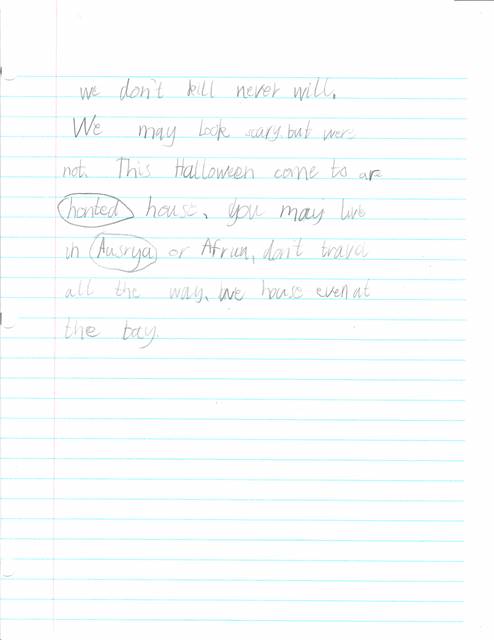 we don't kill never will.
We may look scary but were
not. This Halloween come to ar
honted house. You may live
in Ausrya or Afrian, don't travel
all the way. We house even at
the bay.